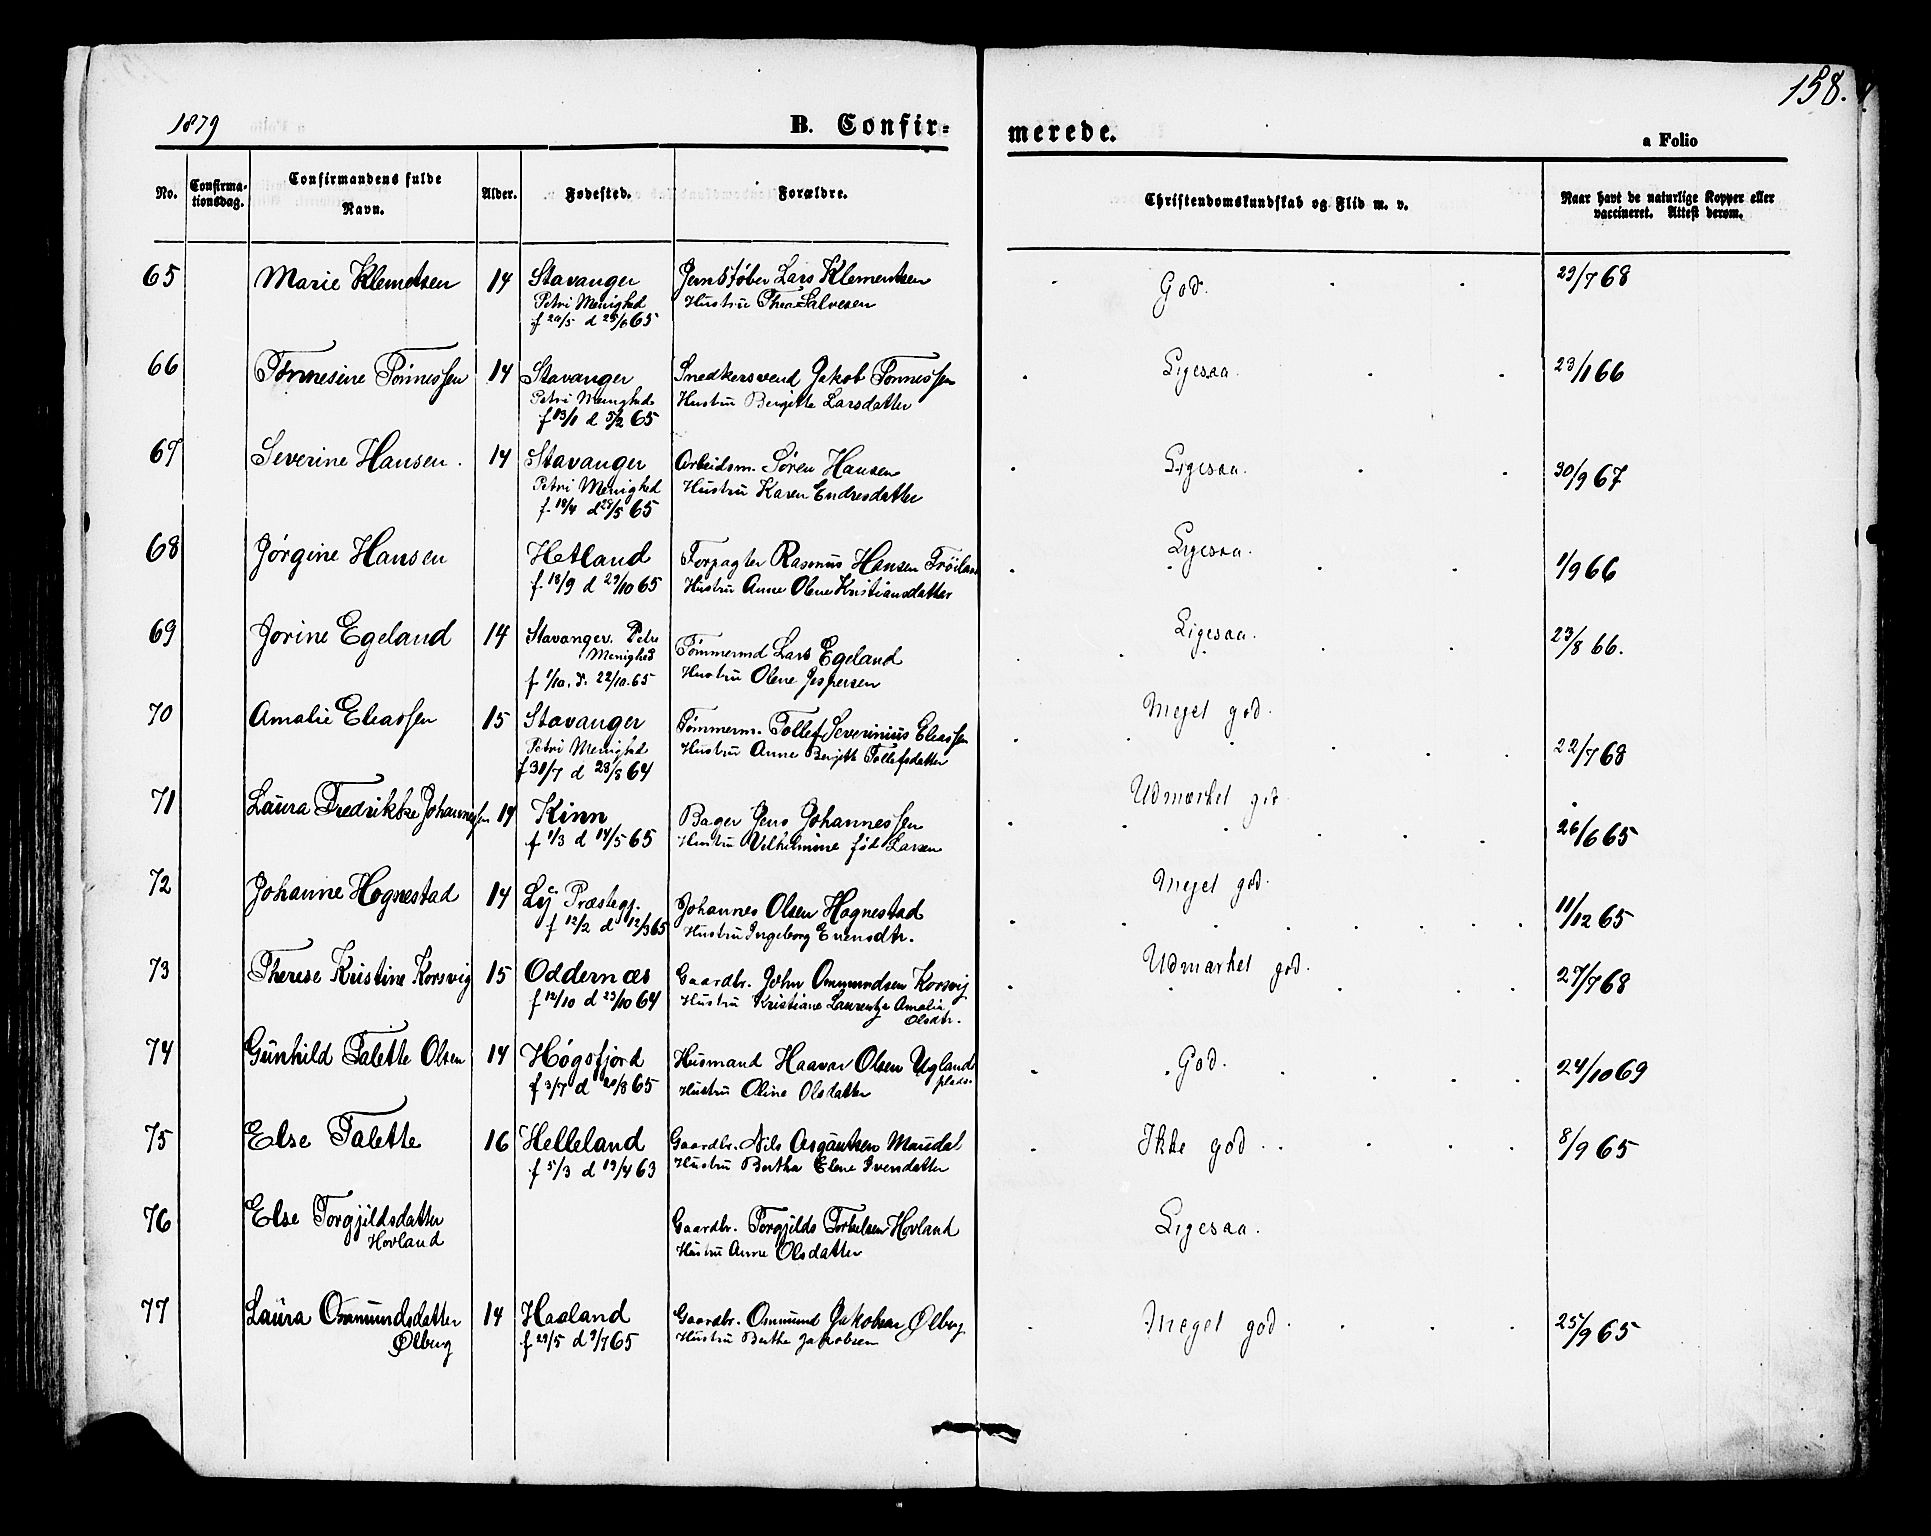 158.
1879
B. Confir-
merede.
a Folio
No.
Confirma-
tionsdag.
Confirmandens fulde
Navn.
Alder.
Fødested.
Forældre.
Christendomskundskab og Flid m. v.
Naar havt de naturlige Kopper eller
vaccineret. Attest derom.
65 Marie Klemetsen 14 Stavanger Jernstøber Lars Klementsen God. 23/7 68
Petri Menighed Hustru Thea Salvesen
f 20/5 d 25/6 65
66 Tønnesine Tönnessen 14 Stavanger Snedkersvend Jakob Tonnessen Ligesaa. 23/1 66
Petri Menighed Hustru Bergitte Larsdatter
f 13/1 d 5/2 65
67 Severine Hansen. 14 Stavanger Arbeidsm. Sören Hansen Ligesaa. 30/9 67
Petri Menighed Hustru Karen Endresdatter
f. 18/4 d 29/5 65
68 Jørgine Hansen Hetland Forpagter Rasmus Hansen Ligesaa. 1/9 66
f. 18/9 d 29/10 65 Hustru Anne Olene Kristiansdatter
69 Jorine Egeland 14 Stavanger. Petri Tömmermd Lars Egeland Ligesaa. 23/8 66.
Menighed Hustru Olene Jespersen
f 1/10. d. 22/10. 65
70 Amalie Eleassen 15 Stavanger Tömmerm. Tollef Severinius Eleassen Meget god. 22/7 68
Petri Menighed Hustru Anne Bergitte Tollefsdatter
f 30/7 d 28/8 64
71 Laura Fredrikke Johannessen 14 Kinn Bager Jens Johannessen Udmærket god 26/6 65
f 1/3 d 14/5 65 Hustru Vilhelmine fød Larsen
72 Johanne Hognestad 14 Ly Præstegj. Johannes Olsen Hognestad Meget god. 11/12 65
f 12/2 d 12/3 65 Hustru Ingeborg Evensdtr.
73 Therese Kristine Korsvig 15 Oddernæs Gaardbr. John Ommundsen Korsvig Udmærket god. 27/7 68
f 12/10 d 23/10 64 Hustru Kristiane Laurentze Amalia
Olsdtr.
74 Gunhild Talette Olsen 14 Høgsfjord Husmand Haavar Olsen Ugland God. 24/10 69
plads.
f 3/7 d 20/8 65 Hustru Oline Olsdatter
75 Else Talette 16 Helleland Gaardbr. Nils Asgautsen Maudal Ikke god. 8/9 65
f 5/3 d 19/4 63 Hustru Bertha Elene Ivensdatter
76 Else Torgjildsdatter Gaardbr. Torgjilds Torkelsen Hovland Ligesaa.
Hovland Hustru Anne Olsdatter
77 Laura Ommundsdatter 14 Haaland Gaardbr. Ommund Jakobsen Ølberg Meget god. 25/9 65
Ølberg f 29/5 d 9/7 65 Hustru Berthe Jakobsen